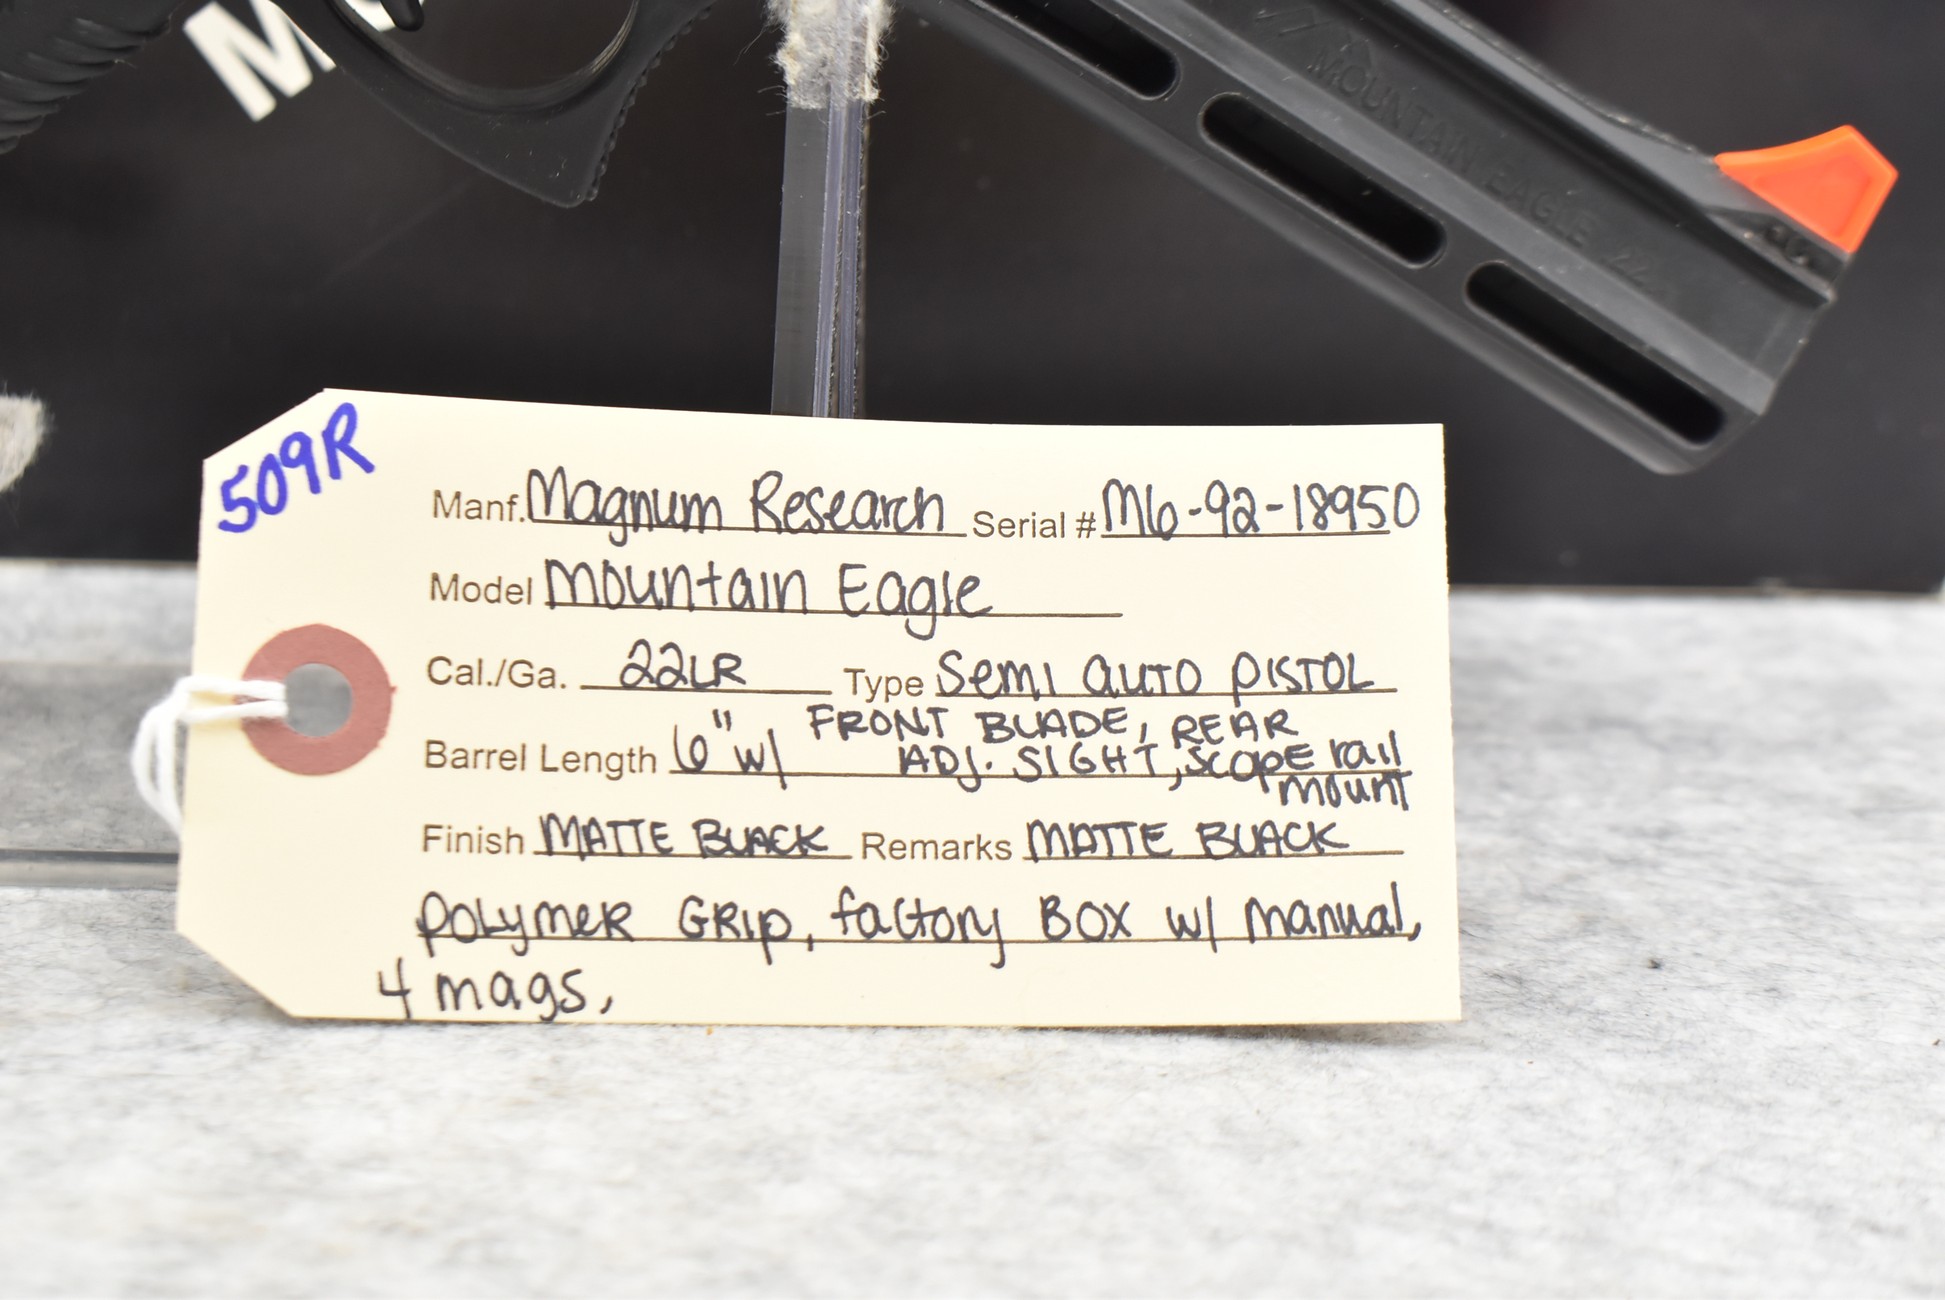 MOUNTAIN EAGLE
509R
Manf. Magnum Research Serial # M6-92-18950
Model Mountain Eagle
Cal./Ga. 22LR Type Semi AUTO PISTOL
Barrel Length 6" w/ FRONT BLADE, REAR
ADJ. SIGHT, Scope rail
mount
Finish MATTE BLACK Remarks MATTE BLACK
POLYMER GRIP, factory BOX w/ manual,
4 mags,